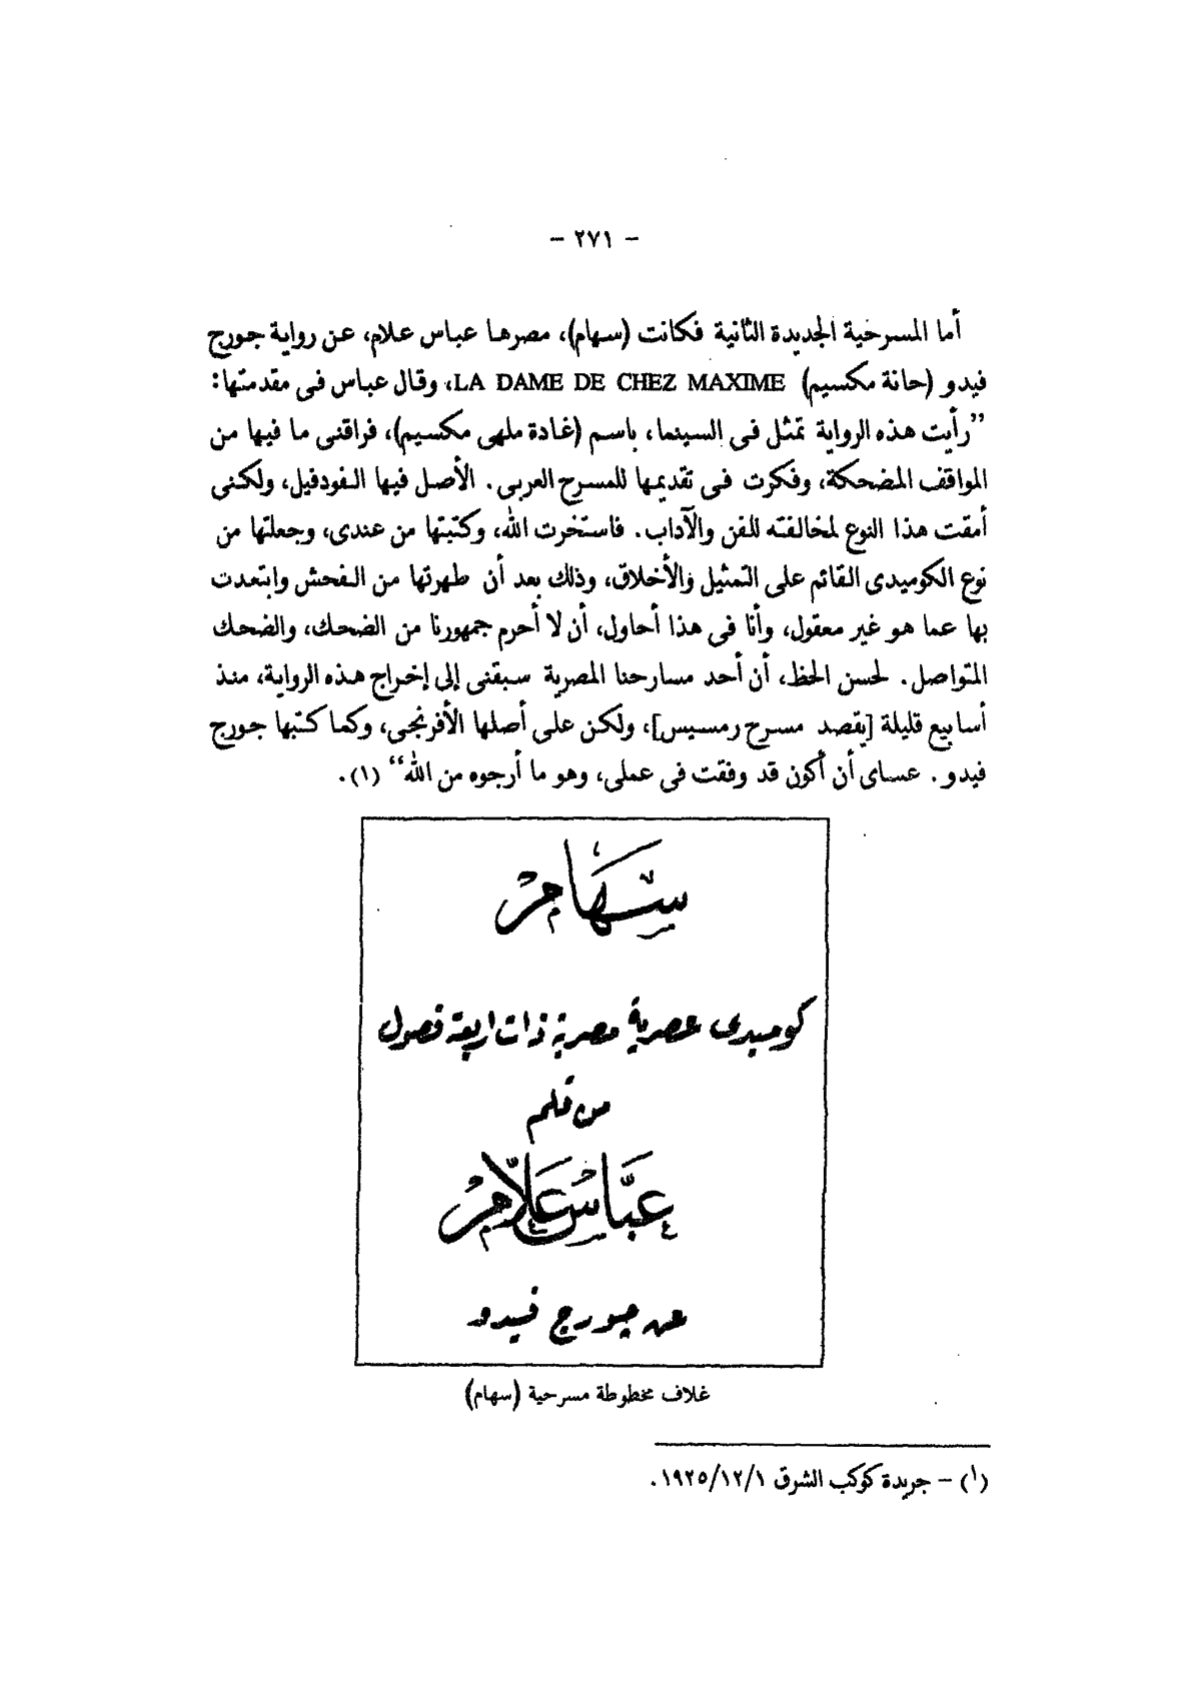 - ٢٧١ -
أما المسرحية الجديدة الثانية فكانت (سهام)، مصرها عباس علام، عن رواية جورج
فيدو (حانة مكسيم) LA DAME DE CHEZ MAXIME، وقال عباس فى مقدمتها:
”رأيت هذه الرواية تمثل فى السينما، باسم (غادة ملهى مكسيم)، فراقنى ما فيها من
المواقف المضحكة، وفكرت فى تقديمها للمسرح العربى. الأصل فيها الفودفيل، ولكنى
أمقت هذا النوع لمخالفته للفن والآداب. فاستخرت الله، وكتبتها من عندى، وجعلتها من
نوع الكوميدى القائم على التمثيل والأخلاق، وذلك بعد أن طهرتها من الفحش وابتعدت
بها عما هو غير معقول، وأنا فى هذا أحاول، أن لا أحرم جمهورنا من الضحك، والضحك
المتواصل. لحسن الحظ، أن أحد مسارحنا المصرية سبقنى إلى إخراج هذه الرواية، منذ
أسابيع قليلة [يقصد مسرح رمسيس]، ولكن على أصلها الأفرنجى، وكما كتبها جورج
فيدو. عساى أن أكون قد وفقت فى عملى، وهو ما أرجوه من الله“ (١).
سهام
كوميدى عصرية مصرية ذات اربعة فصول
من قلم
عبَّاس علّام
عن جورج فيدو
غلاف مخطوطة مسرحية (سهام)
(١) - جريدة كوكب الشرق ١٩٢٥/١٢/١.